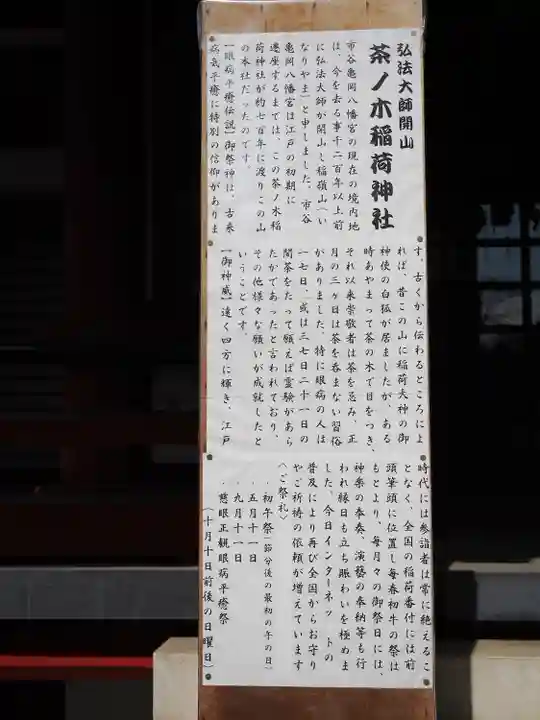 弘法大師開山
茶ノ木稲荷神社
市谷亀岡八幡宮の現在の境内地
は、今を去る事千二百年以上前
に弘法大師が開山し稲嶺山（い
なりやま）と申しました。市谷
亀岡八幡宮は江戸の初期に
遷座するまでは、この茶ノ木稲
荷神社が約七百年に渡りこの山
の本社だったのです。
【眼病平癒伝説】御祭神は、古来
病気平癒に特別の信仰がありま
す。古くから伝わるところによ
れば、昔この山に稲荷大神の御
神使の白狐が居ましたが、ある
時あやまって茶の木で目をつき、
それ以来崇敬者は茶を忌み、正
月の三ヶ日は茶を呑まない習俗
がありました。特に眼病の人は
一七日、或は三七日二十一日の
間茶をたって願えば霊験があら
たかであったと言われており、
その他様々な願いが成就したと
いうことです。
【御神威】遠く四方に輝き、江戸
時代には参詣者は常に絶えるこ
となく、全国の稲荷番付には前
頭筆頭に位置し毎春初牛の祭は
もとより、毎月々の御祭日には、
神楽の奉奏、演藝の奉納等も行
われ縁日も立ち賑わいを極めま
した。今日インターネットの
普及により再び全国からお守り
やご祈祷の依頼が増えています
〈ご祭礼〉
・初午祭（節分後の最初の午の日）
・五月十一日
・九月十一日
・慈眼正観眼病平癒祭
（十月十日前後の日曜日）